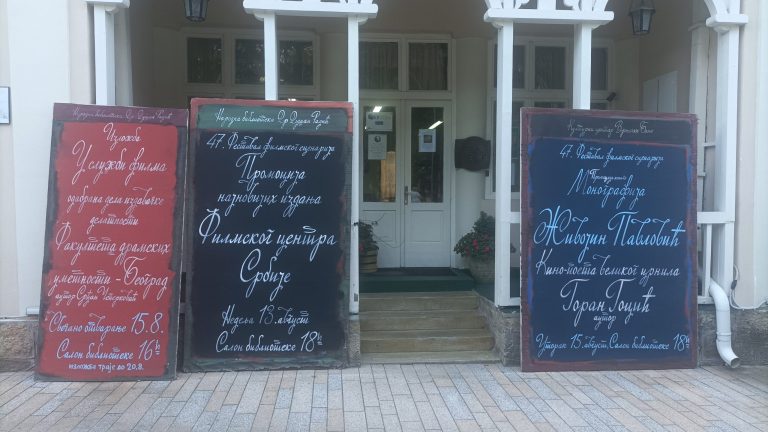 Народна библиотека „Др Душан Радић"
Изложба
У служби филма
одабрана дела издавачке
делатности
Факултета драмских
уметности - Београд
аутор Срђан
Свечано отварање 15.8.
Салон библиотеке 16h
изложба траје до 20.8.
Народна библиотека „Др Душан Радић"
47. Фестивал филмског сценарија
Промоција
најновијих издања
Филмског центра
Србије
Недеља 13. август
Салон библиотеке 18h
Културни центар Врњачке Бање
47. Фестивал филмског сценарија
Монографија
Живојин Павловић
Кино-поета великог црнила
Горан Гоцић
аутор
Уторак 15. август, Салон библиотеке 18h